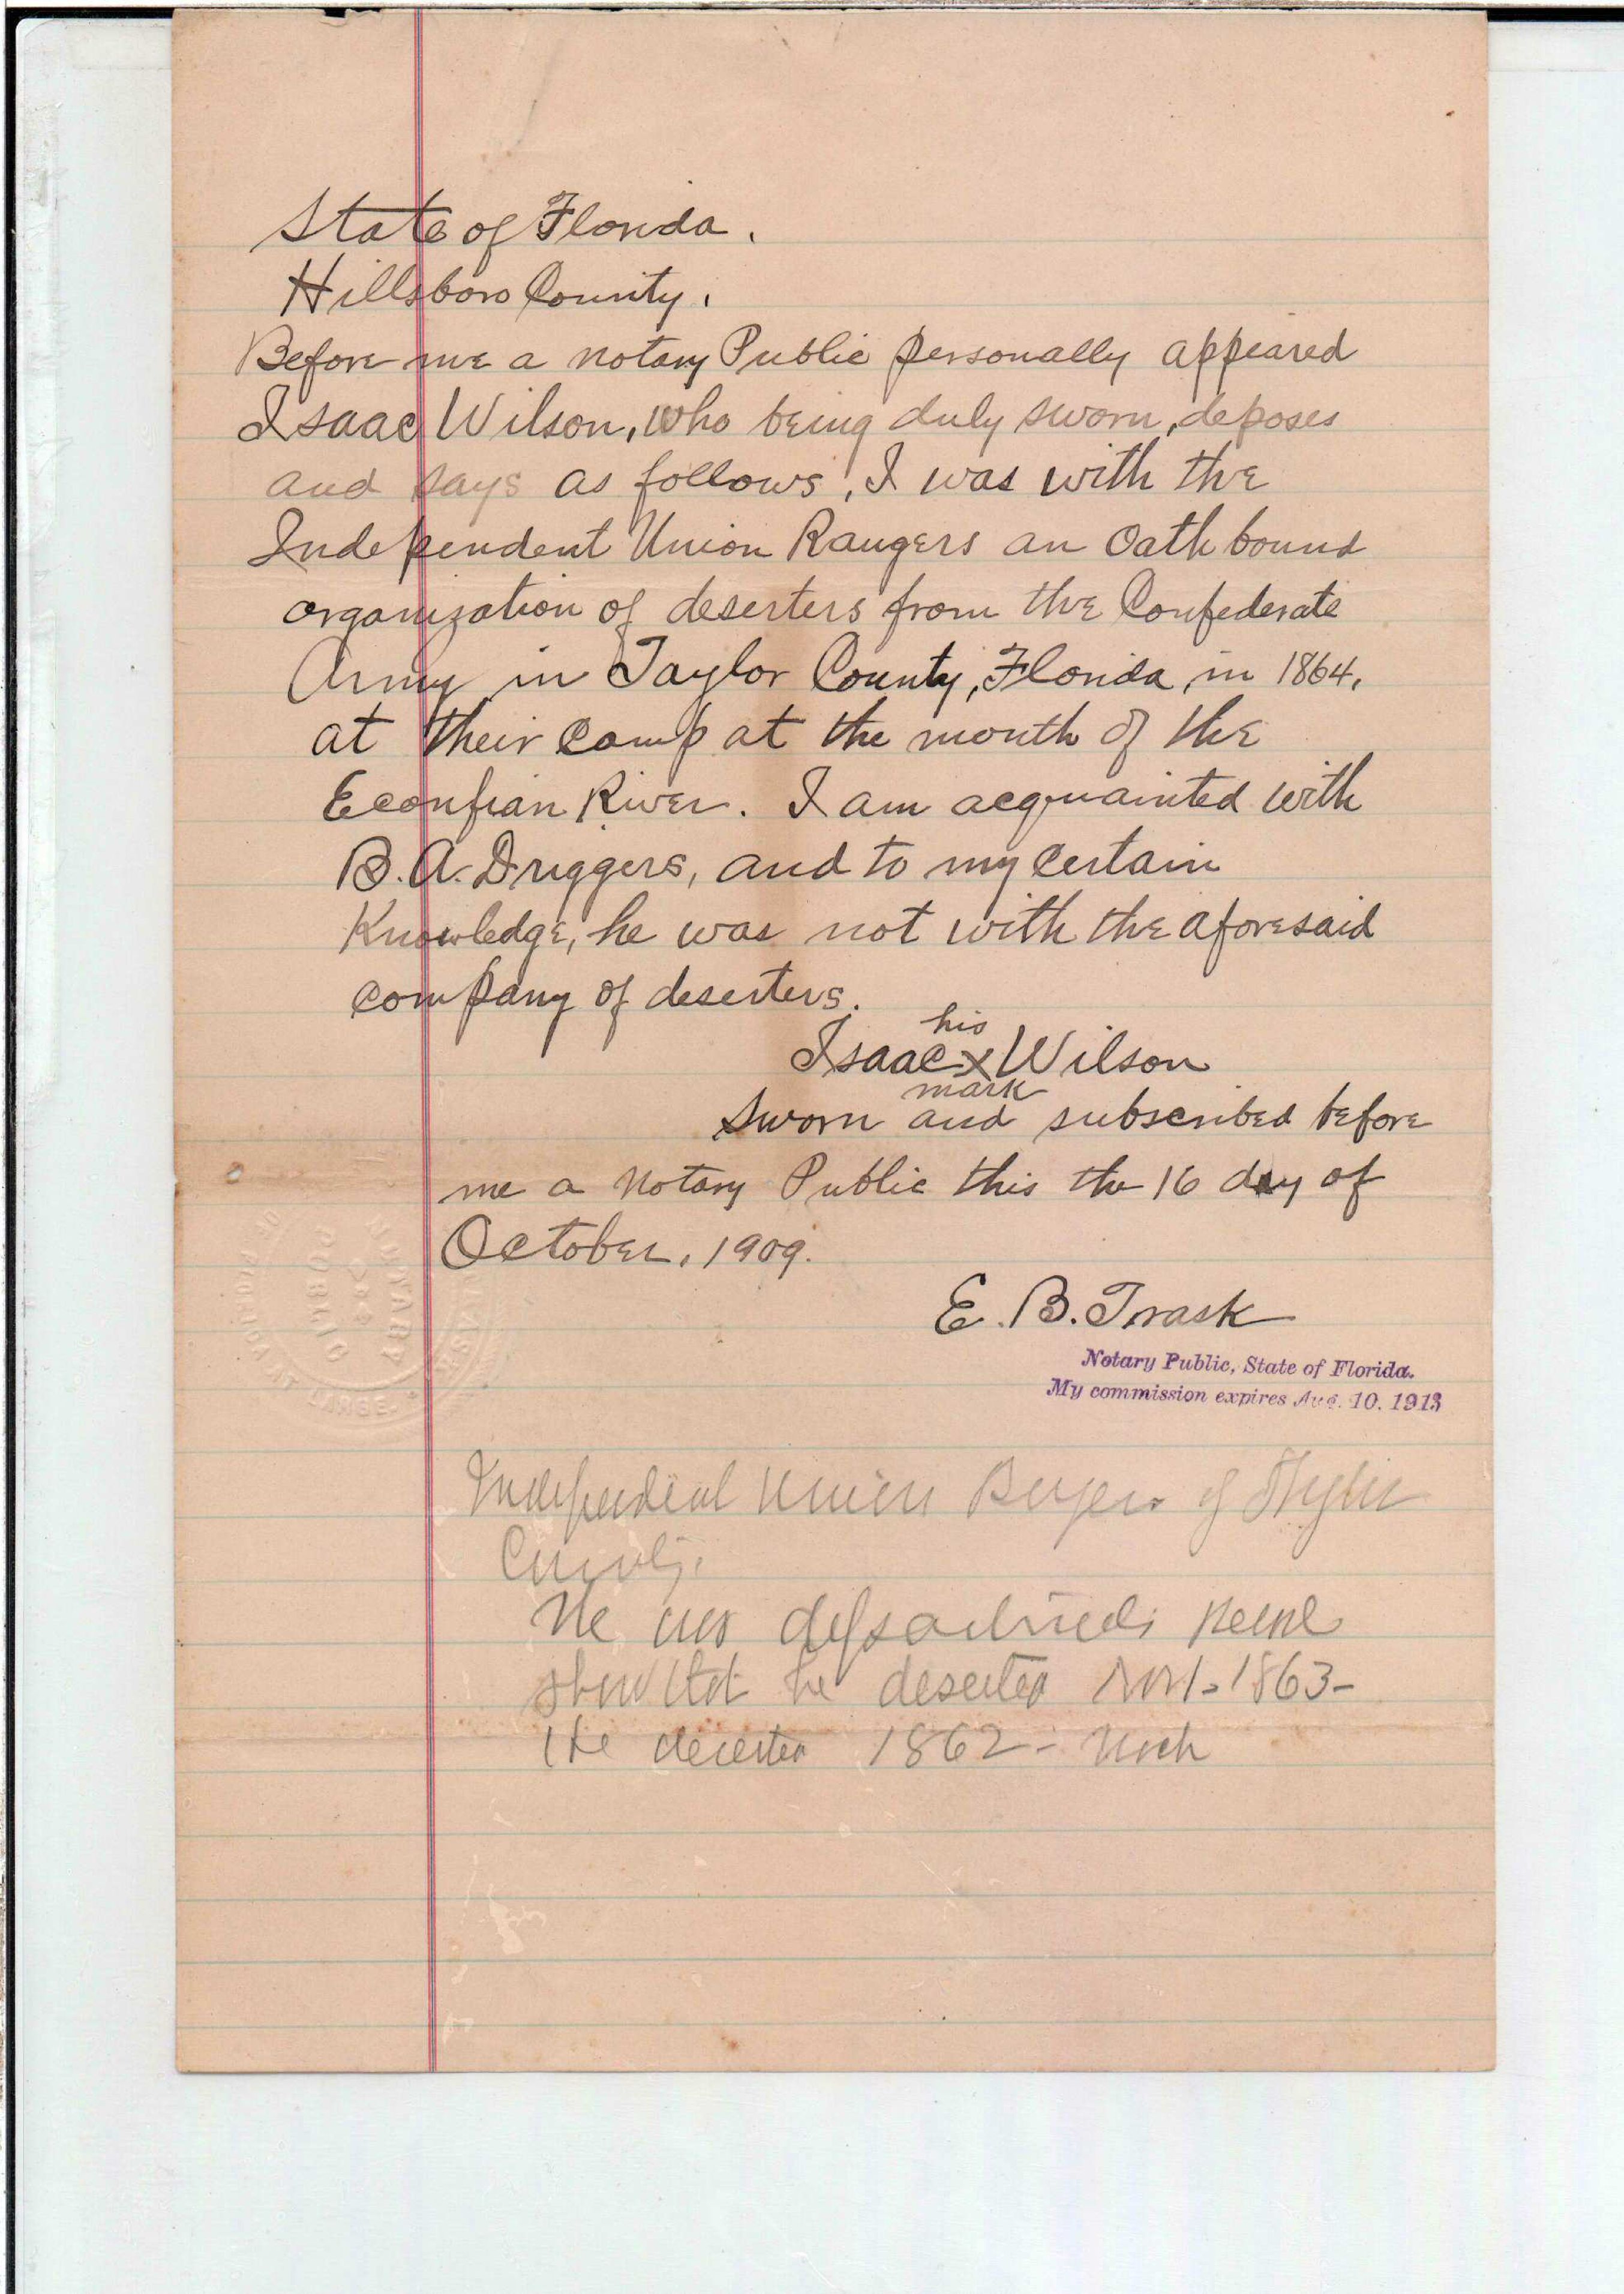 State of Florida.
Hillsboro County.
Before me a notary Public personally appeared
Isaac Wilson, who being duly sworn, deposes
and says as follows, I was with the
Independent Union Rangers an Oath bound
organization of deserters from the Confederate
Army in Taylor County, Florida, in 1864,
at their camp at the mouth of the
Econfian River. I am acquainted with
B. A. Driggers, and to my certain
Knowledge, he was not with the aforesaid
company of deserters.
his
Isaac x Wilson
mark
Sworn and subscribed before
me a Notary Public this the 16 day of
October, 1909.
E. B. Trask
Notary Public, State of Florida.
My commission expires Aug. 10. 1913
NOTARY
PUBLIC
STATE
OF FLORIDA AT LARGE.
Independent Union of
County.
He was
show that he deserted 1863-
He deserted 1862-